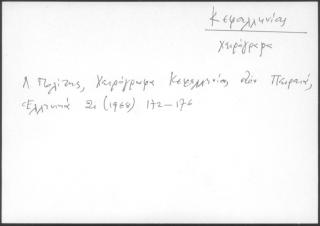 Κεφαλληνίας
χειρόγραφα
Λ Πολίτης, Χειρόγραφα Κεφαλληνίας στὸν Πειραιά,
Ἑλληνικά 21 (1968) 172–176